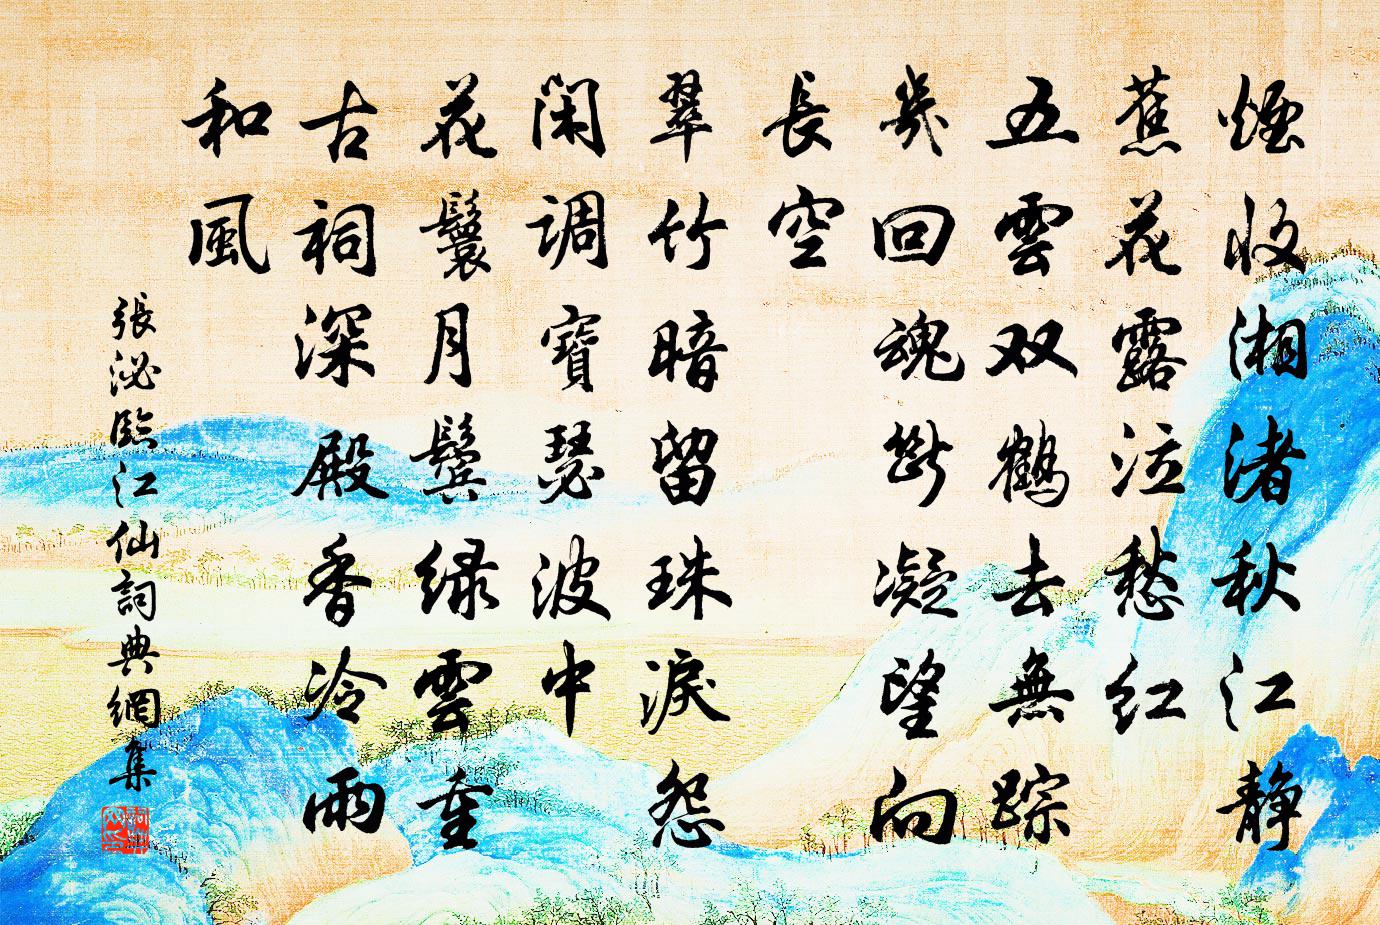 煙收湘渚秋江静
蕉花露泣愁红
五雲双鶴去無踪
幾回魂斷凝望向
長空
翠竹暗留珠淚怨
闲调寶瑟波中
花鬟月鬓绿雲重
古祠深殿香冷雨
和風
張泌臨江仙詞典網集